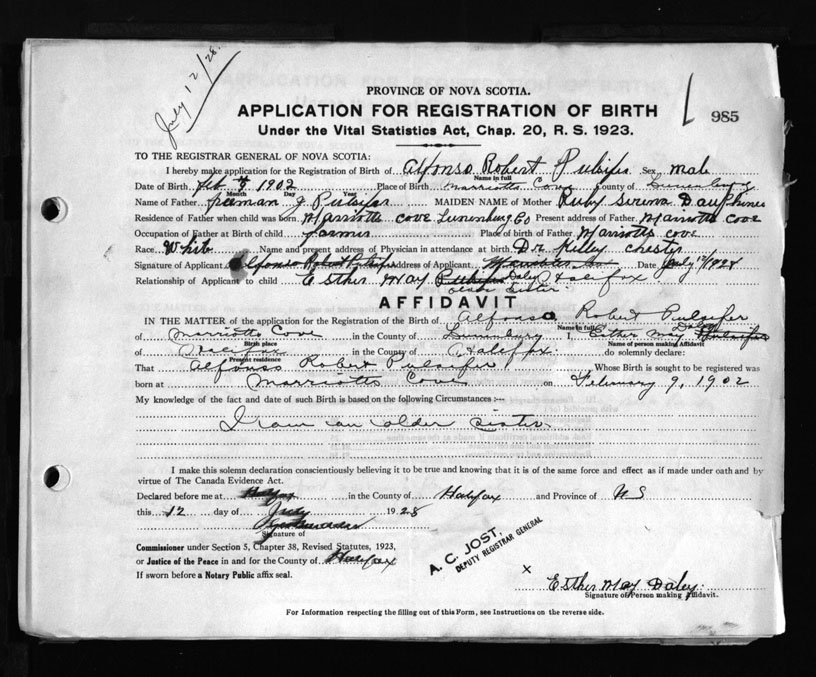 July 12/28.
PROVINCE OF NOVA SCOTIA.
APPLICATION FOR REGISTRATION OF BIRTH
985
Under the Vital Statistics Act, Chap. 20, R. S. 1923.
TO THE REGISTRAR GENERAL OF NOVA SCOTIA:
I hereby make application for the Registration of Birth of Alfonso Robert Pulsifer Sex Male
Name in full
Date of Birth Feb 9 1902 Place of Birth Marriotts Cove County of Lunenburg
Month Day Year
Name of Father Freeman J Pulsifer MAIDEN NAME of Mother Ruby Dauphinee
Residence of Father when child was born Marriotts Cove Lunenburg Co Present address of Father Marriotts Cove
Occupation of Father at Birth of child farmer Place of birth of Father Marriotts Cove
Race White Name and present address of Physician in attendance at birth Dr Chester
Signature of Applicant Alfonso Robert Pulsifer Address of Applicant Date July 12/1928
Relationship of Applicant to child Esther May Daley Halifax
older sister
AFFIDAVIT
IN THE MATTER of the application for the Registration of Birth of Alfonso Robert Pulsifer
Name in full
of Marriotts Cove in the County of Lunenburg I, Esther May Daley Pulsifer
Birth place Name of person making affidavit
of Halifax in the County of Halifax do solemnly declare:
Present residence
That Alfonso Robert Pulsifer Whose Birth is sought to be registered was
born at Marriotts Cove on February 9, 1902
My knowledge of the fact and date of such Birth is based on the following Circumstances :—
I am an older sister
I make this solemn declaration conscientiously believing it to be true and knowing that it is of the same force and effect as if made under oath and by
virtue of The Canada Evidence Act.
Declared before me at in the County of Halifax and Province of NS
this 12 day of July 1928
Signature of
Commissioner under Section 5, Chapter 38, Revised Statutes, 1923,
or Justice of the Peace in and for the County of Halifax
If sworn before a Notary Public affix seal.
A. C. JOST,
DEPUTY REGISTRAR GENERAL
x Esther May Daley
Signature of Person making Affidavit.
For Information respecting the filling out of this Form, see Instructions on the reverse side.